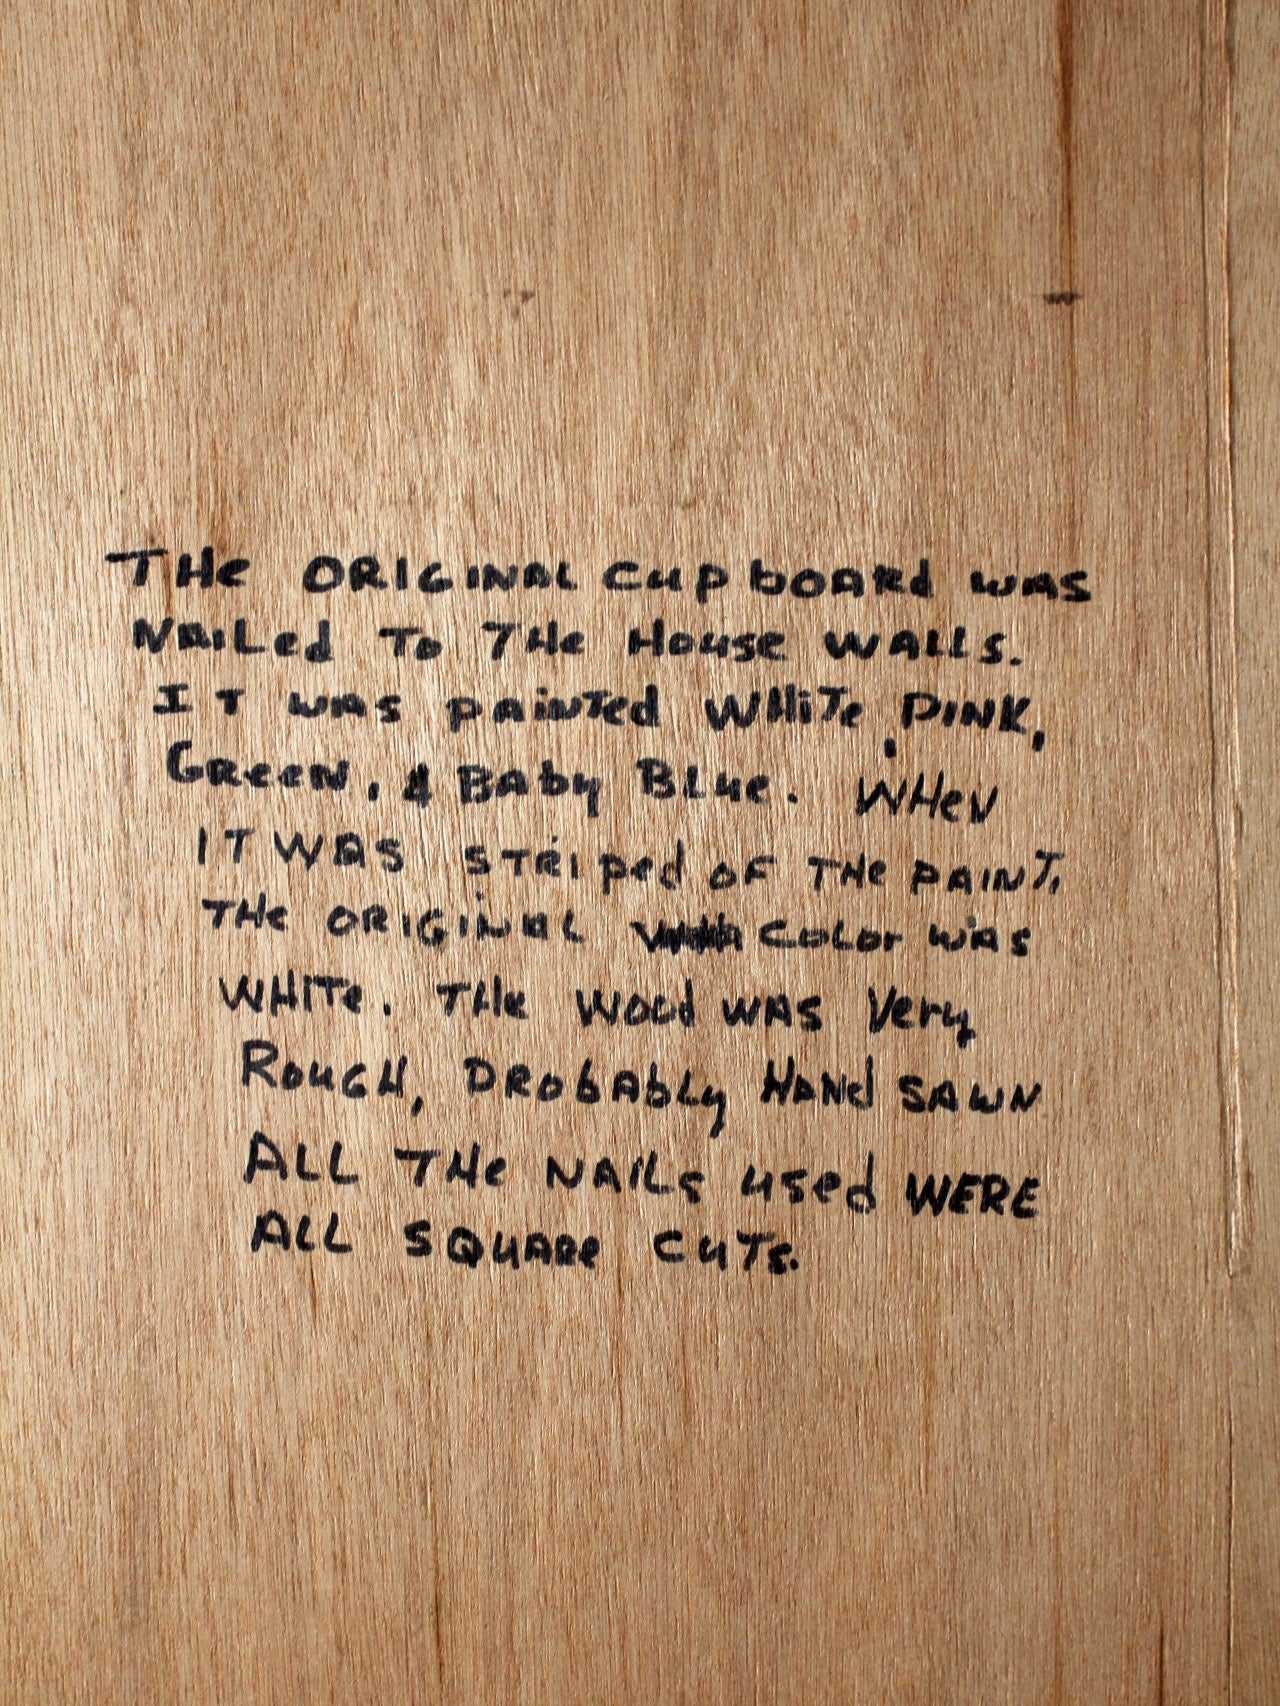 THe ORIGINAL CupboARd WAS
NAILed To THe House WALLS.
IT WAS pAiNTed WHiTe, PINK,
GReeN, & BAby BLue. WHeN
IT WAS STRiped oF THe PAINT,
THe ORIGINAL COLOr WAS
WHITe. THe Wood WAS Very
RouGH, PRobAbLy HANd SAWN
ALL THe NAILs used WERE
ALL SQuARe CuTs.